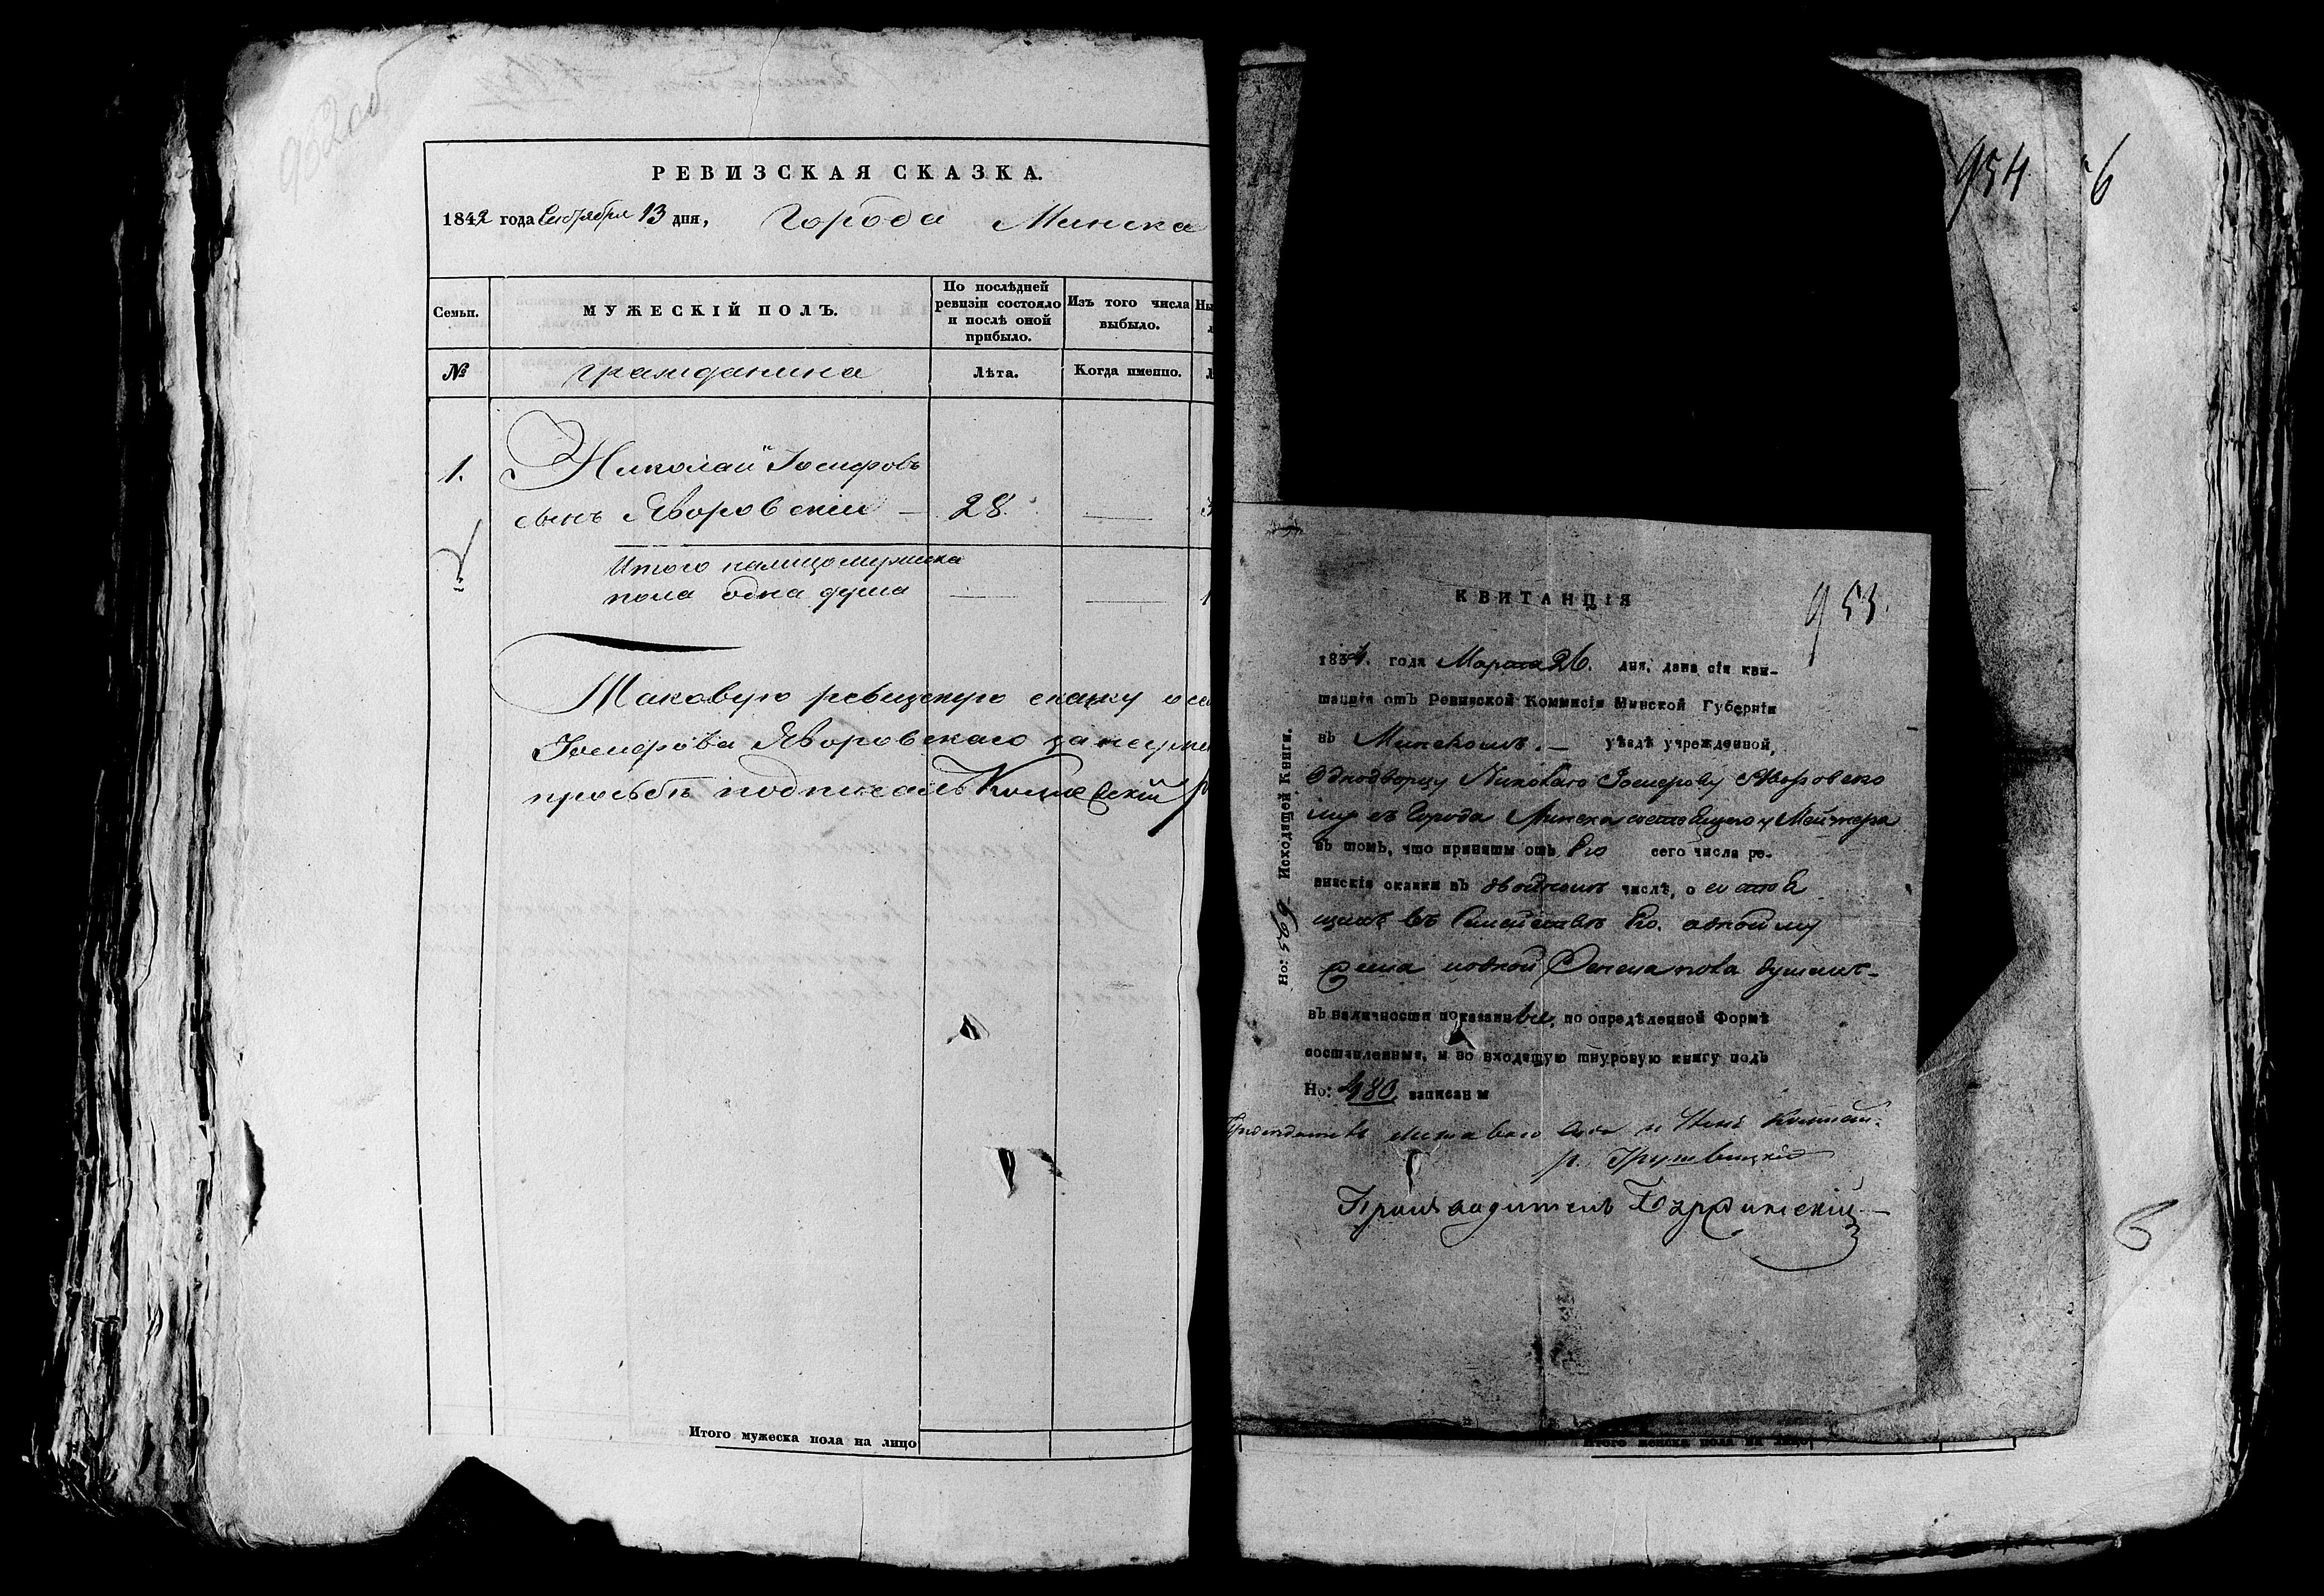 952 об
РЕВИЗСКАЯ СКАЗКА.
1842 года Сентября 13 дня, Города Минска
Семьи.
МУЖЕСКІЙ ПОЛЪ.
По послѣдней
ревизіи состояло
и послѣ оной
прибыло.
Изъ того числа
выбыло.
№
гражданина
Лѣта.
Когда именно.
1.
Николай Іосифовъ
сынъ Яворовскій — 28.
Итого налицо мужеска
пола одна душа
Таковую ревизскую сказку
Іосифова Яворовскаго
прозьбѣ подписалъ
Итого мужеска пола на лицо
954
6
КВИТАНЦІЯ
953.
1834. года Марта 26. дня, дана сія кви-
танція отъ Ревизской Коммисіи Минской Губерніи
въ Минскомъ. — уѣздѣ учрежденной,
Однодворцу Николаю Іосифову Яворовско
му съ Города Минска
въ томъ, что приняты отъ Его сего числа ре-
визскія сказки въ двойномъ числѣ, о состоя
щихъ въ Семействѣ Его. одной му
жеска и одной Женска пола душахъ
въ наличности показанные, по опредѣленной Формѣ
составленныя, и во входящую шнуровую книгу подъ
Но: 480. записаны
Но: 695 Исходящей Книги.
р. Грушвицкій
Производитель
Итого женска пола на лицо
6